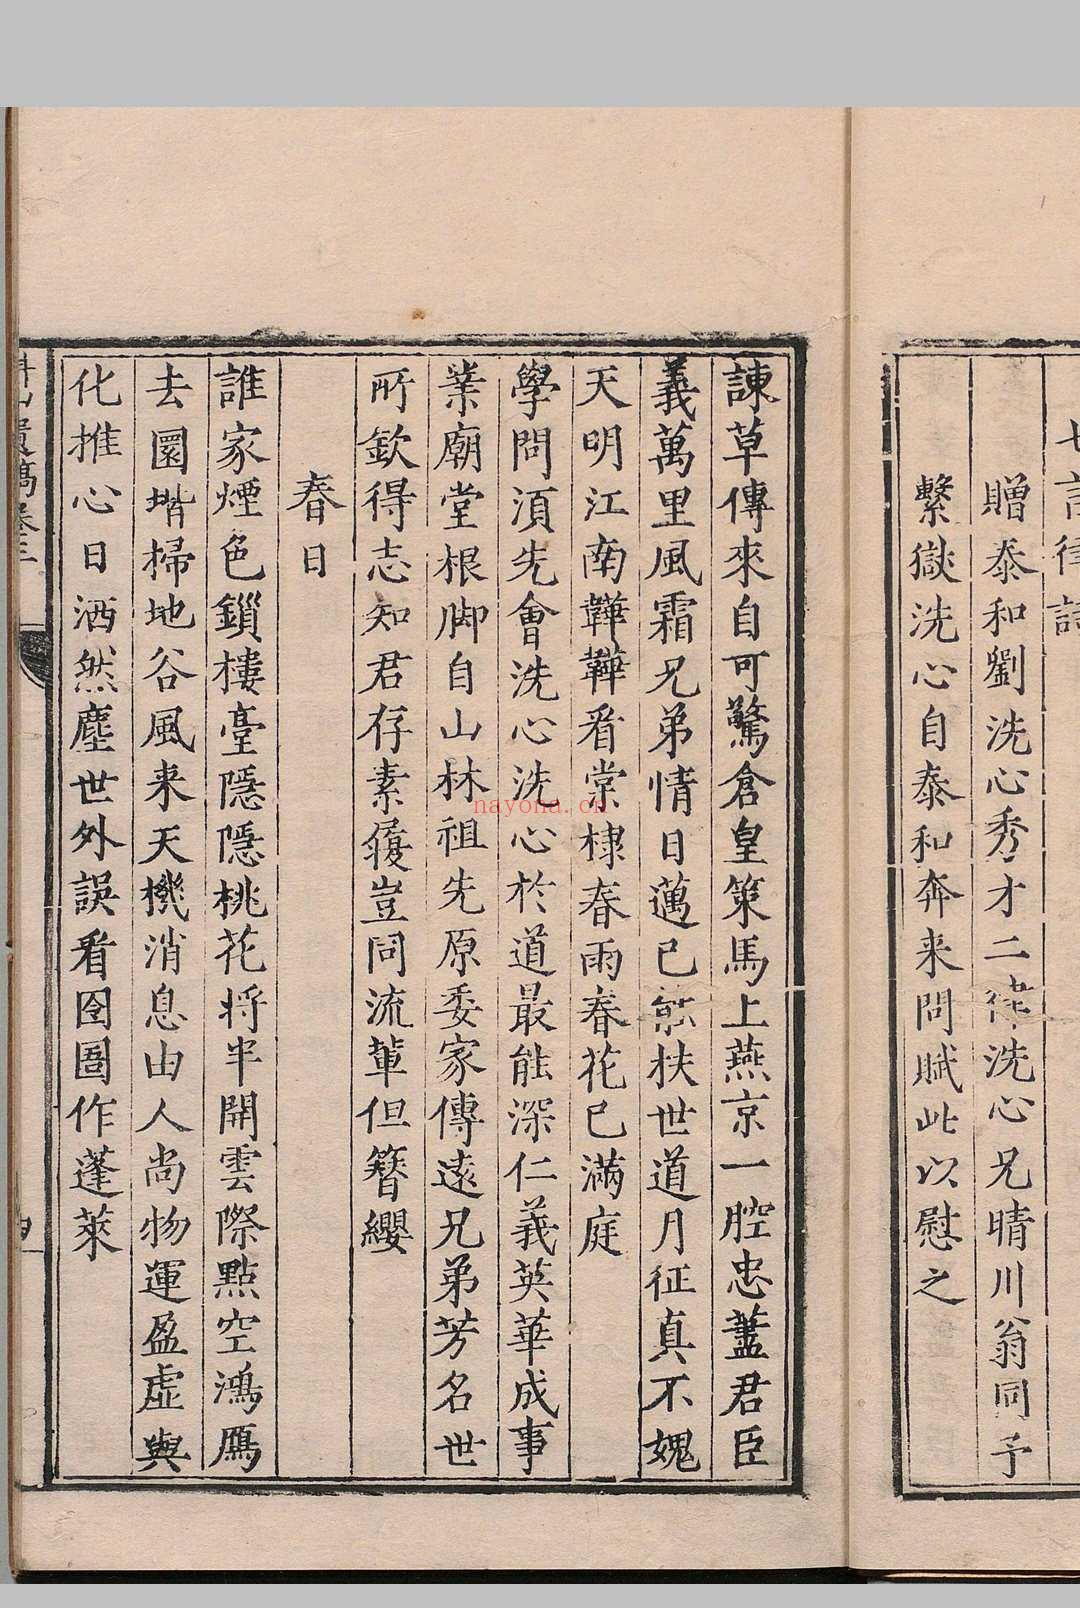 七言律詩
贈泰和劉洗心秀才二律洗心兄晴川翁同予
繫獄洗心自泰和奔来問賦此以慰之
諫草傳來自可驚倉皇策馬上燕京一腔忠藎君臣
義萬里風霜兄弟情日邁已能扶世道月征真不媿
天明江南韡韡看棠棣春雨春花已滿庭
學問須先會洗心洗心於道最能深仁義英華成事
業廟堂根脚自山林祖先原委家傳遠兄弟芳名世
所欽得志知君存素履豈同流軰但簪纓
春日
誰家煙色鎖樓臺隱隱桃花将半開雲際點空鴻鴈
去園堦掃地谷風来天機消息由人尚物運盈虛與
化推心日洒然塵世外誤看囹圄作蓬萊
遺稿卷三
四
nayona.cn